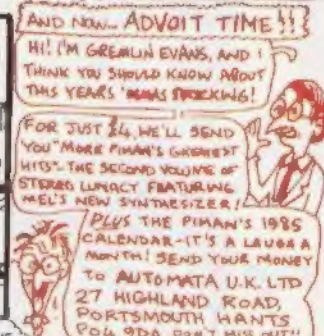 AND NOW... ADVOIT TIME!!
HI! I'M GREMLIN EVANS, AND I
THINK YOU SHOULD KNOW ABOUT
THIS YEARS 'XMAS STOCKING!
FOR JUST £4, WE'LL SEND
YOU "MORE PIMAN'S GREATEST
HITS". THE SECOND VOLUME OF
STEREO LUNACY FEATURING
MEL'S NEW SYNTHESIZER!
PLUS THE PIMAN'S 1985
CALENDAR-IT'S A LAUGH A
MONTH! SEND YOUR MONEY
TO AUTOMATA U.K. LTD
27 HIGHLAND ROAD,
PORTSMOUTH HANTS
PO4 9DA. DON'T MISS OUT!!